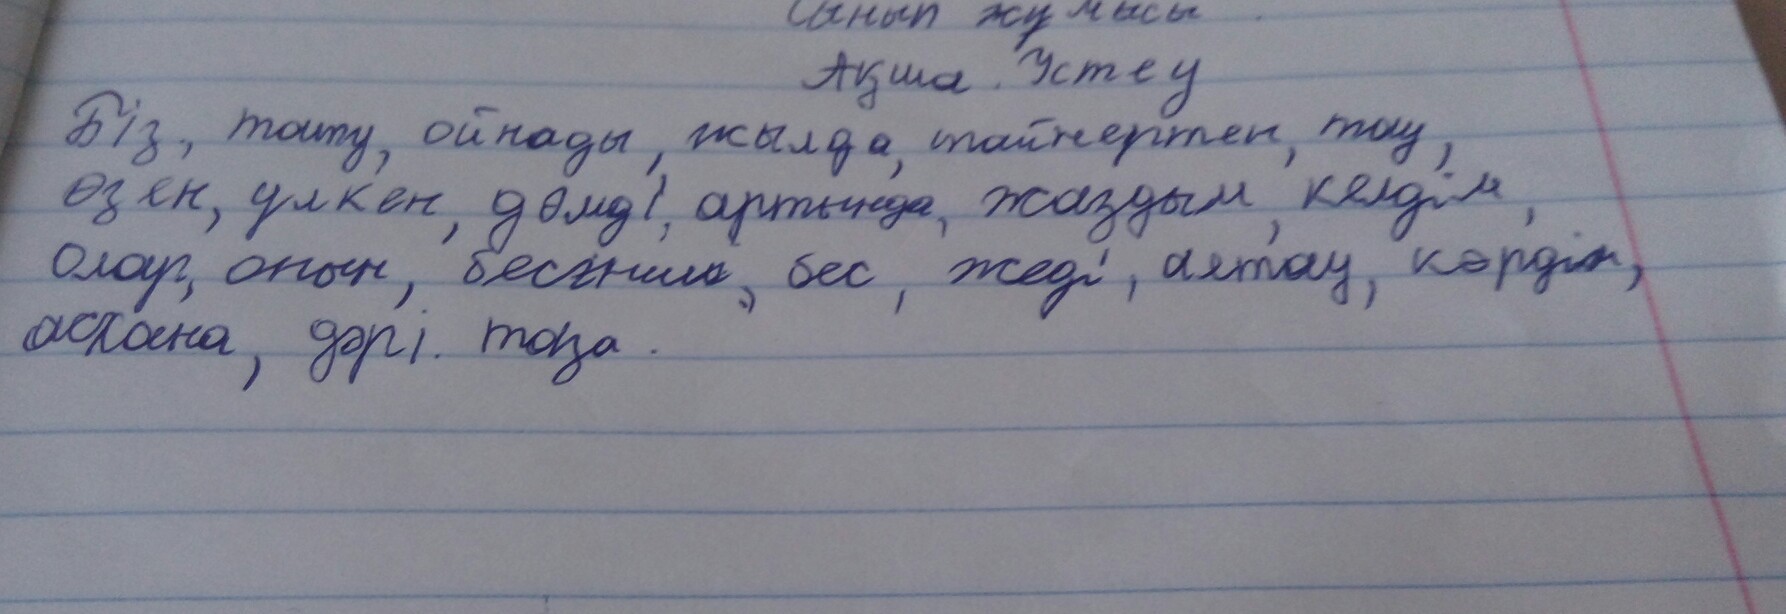 Сынып жұмысы.
Ақша. Үстеу
Біз, тату, ойнады, жылда, таңертен, тау,
өзен, үлкен, дәмді, артында, жаздым, келдім,
Олар, онын, бесінші, бес, жеді, алтау, көрдім,
асхана, дәрі. таза.